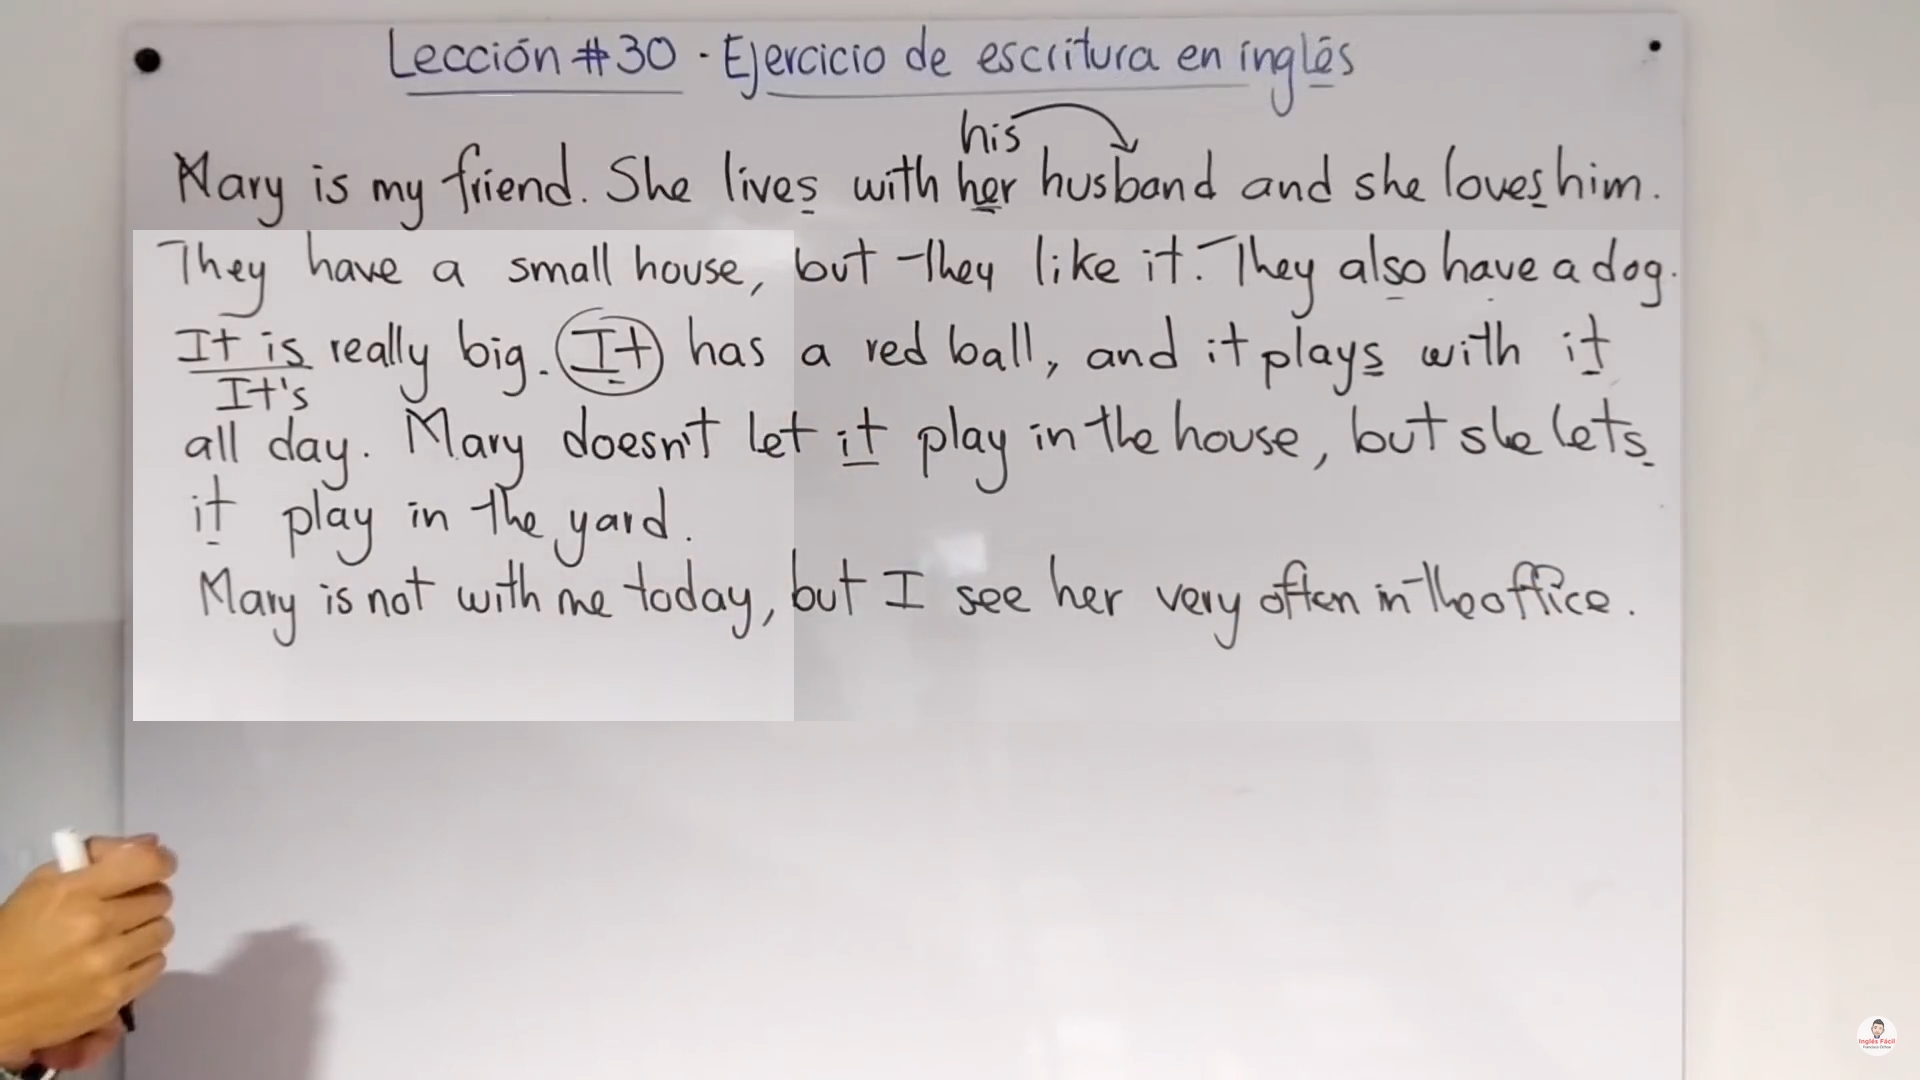 Lección #30 - Ejercicio de escritura en inglés
his
Mary is my friend. She lives with her husband and she loves him.
They have a small house, but they like it. They also have a dog.
It is really big. It has a red ball, and it plays with it
It's
all day. Mary doesn't let it play in the house, but she lets
it play in the yard.
Mary is not with me today, but I see her very often in the office.
Inglés Fácil